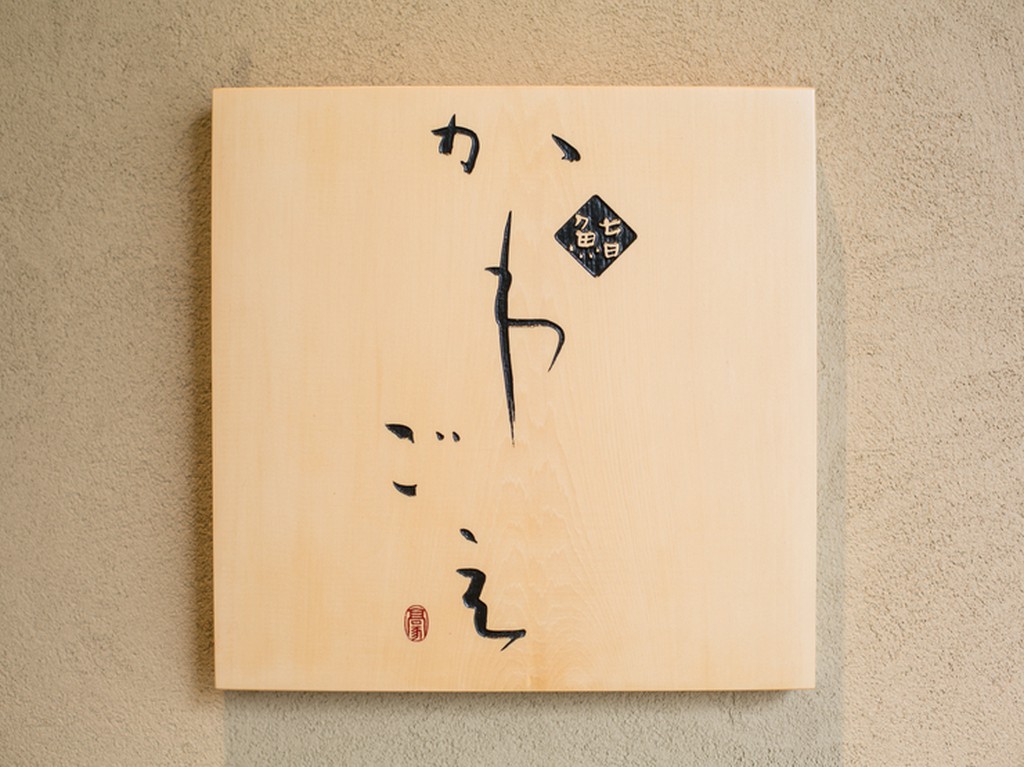 鮨
かわごえ